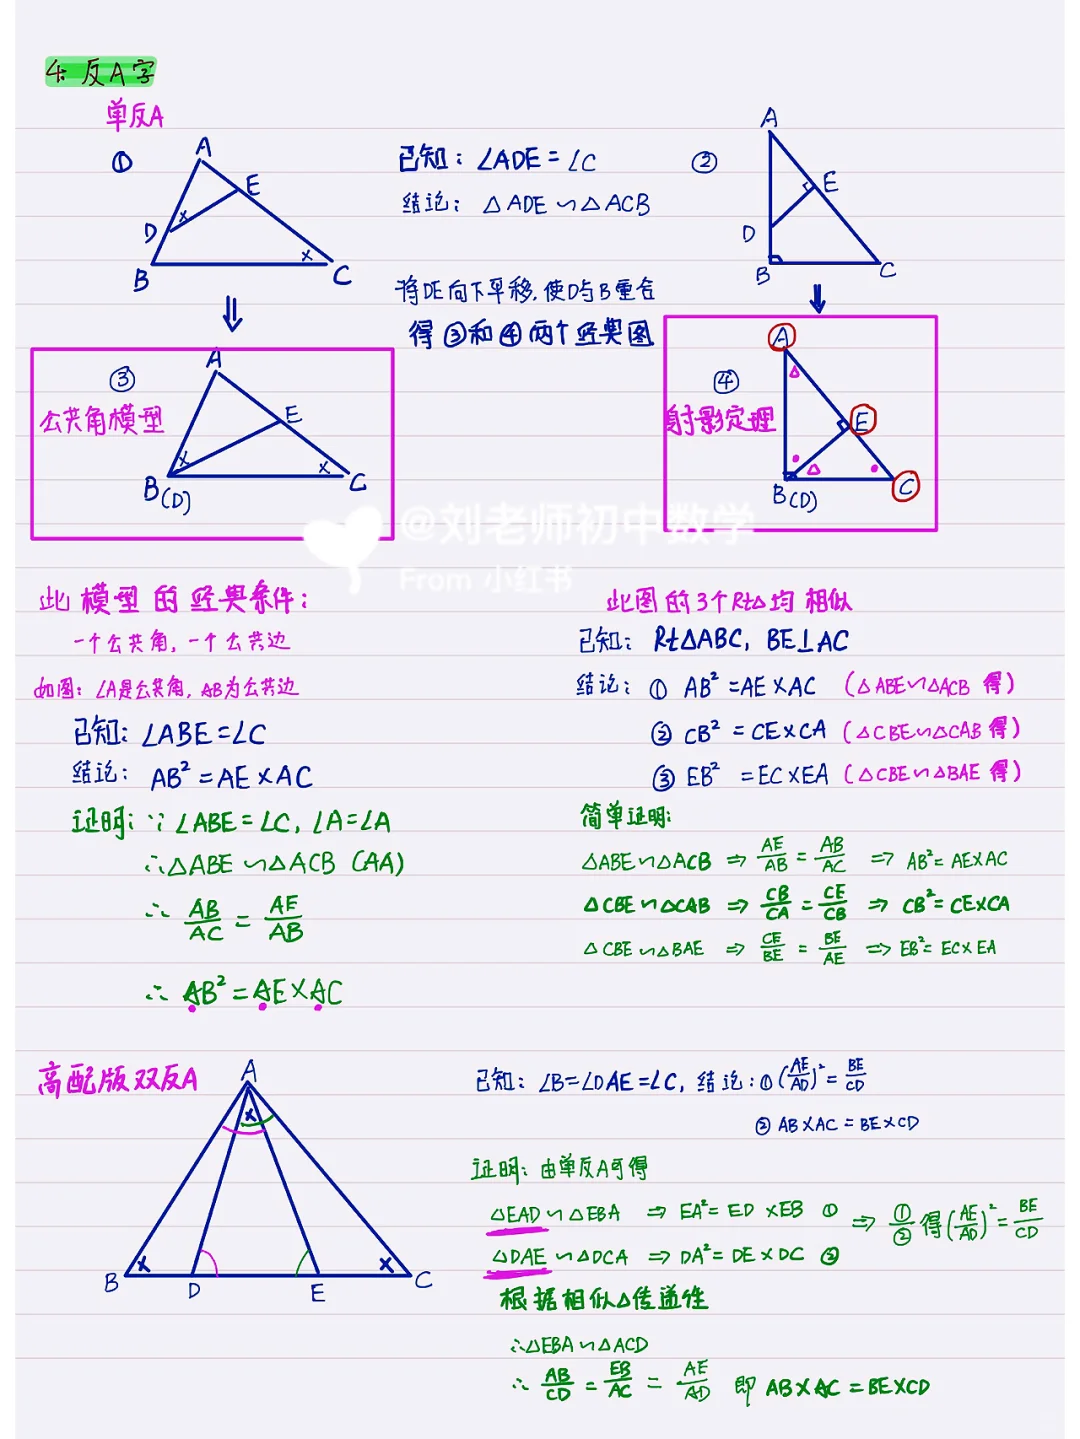 4. 反A字
单反A
①
A
E
D
B
C
已知：∠ADE=∠C
结论：△ADE∽△ACB
②
A
E
D
B
C
将DE向下平移，使D与B重合
得③和④两个经典图
③
公共角模型
A
E
B(D)
C
④
射影定理
A
E
B(D)
C
@刘老师初中数学
From 小红书
此模型的经典条件：
一个公共角，一个公共边
如图：∠A是公共角，AB为公共边
已知：∠ABE=∠C
结论：AB²=AE×AC
证明：∵∠ABE=∠C，∠A=∠A
∴△ABE∽△ACB（AA）
∴ AB/AC = AE/AB
∴ AB²=AE×AC
此图的3个Rt△均相似
已知：Rt△ABC，BE⊥AC
结论：① AB²=AE×AC （△ABE∽△ACB得）
② CB²=CE×CA （△CBE∽△CAB得）
③ EB²=EC×EA （△CBE∽△BAE得）
简单证明：
△ABE∽△ACB ⇒ AE/AB = AB/AC ⇒ AB²=AE×AC
△CBE∽△CAB ⇒ CB/CA = CE/CB ⇒ CB²=CE×CA
△CBE∽△BAE ⇒ CE/BE = BE/AE ⇒ EB²=EC×EA
高配版双反A
A
B
D
E
C
已知：∠B=∠DAE=∠C，结论：①(AE/AD)²=BE/CD
② AB×AC=BE×CD
证明：由单反A可得
△EAD∽△EBA ⇒ EA²=ED×EB ①
△DAE∽△DCA ⇒ DA²=DE×DC ②
⇒ ①/② 得(AE/AD)²=BE/CD
根据相似△传递性
∴△EBA∽△ACD
∴ AB/CD = EB/AC = AE/AD 即 AB×AC=BE×CD